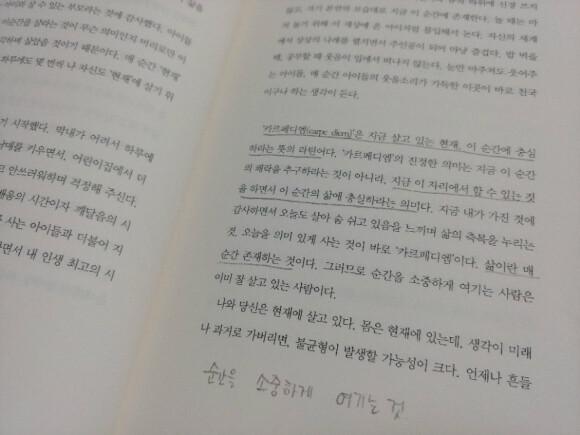 삶을
아이와 살 수 있는 부모라는 것에 감사했다. 아이들
순간을 살라는 것이 무슨 의미인지 머리로만 이
하며 살았을 것이기 때문이다. 매 순간 '현재
하루에도 몇 번씩 나 자신도 '현재'에 살기 위
기 시작했다. 막내가 어려서 하루에
남매를 키우면서, 어린이집에서 더
고 안쓰러워하며 걱정해 주신다.
배움의 시간이자 깨달음의 시
사는 아이들과 더불어 지
면서 내 인생 최고의 시
신경 쓰지
않고, 자기 본연의 모습대로 지금 이 순간에 존재한다. 놀 때는 마
치 놀기 위해 이 세상에 온 아이처럼 몰입해서 논다. 자신의 세계
에서 상상의 나래를 펼치면서 주인공이 되어 마냥 즐겁다. 밥 먹을
때, 공부할 때 웃음이 입에서 떠나지 않는다. 눈만 마주쳐도 웃어주
는 아이들, 매 순간 아이들의 웃음소리가 가득한 이곳이 바로 천국
이구나 하는 생각이 든다.
'카르페디엠(carpe diem)'은 지금 살고 있는 현재, 이 순간에 충실
하라는 뜻의 라틴어다. '카르페디엠'의 진정한 의미는 지금 이 순간
의 쾌락을 추구하라는 것이 아니라, 지금 이 자리에서 할 수 있는 것
을 하면서 이 순간의 삶에 충실하라는 의미다. 지금 내가 가진 것에
감사하면서 오늘도 살아 숨 쉬고 있음을 느끼며 삶의 축복을 누리는
것, 오늘을 의미 있게 사는 것이 바로 '카르페디엠'이다. 삶이란 매
순간 존재하는 것이다. 그러므로 순간을 소중하게 여기는 사람은
이미 잘 살고 있는 사람이다.
나와 당신은 현재에 살고 있다. 몸은 현재에 있는데, 생각이 미래
나 과거로 가버리면, 불균형이 발생할 가능성이 크다. 언제나 흔들
순간을 소중하게 여기는 것